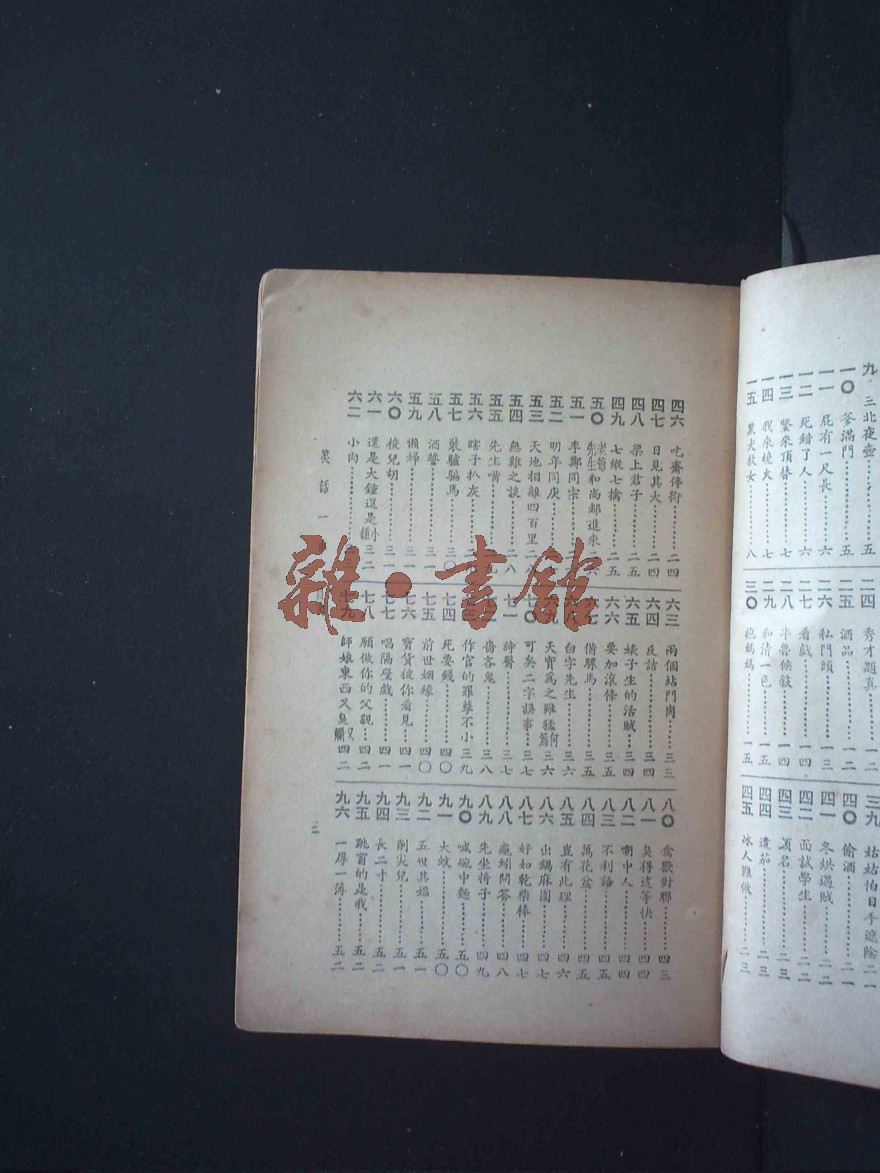 九 三北夜壺 五
一〇 爹滿門 五
一一 屁有一尺長 六
一二 死錯了人 六
一三 豎來頂替 七
一四 我來燒火 七
一五 黑犬救女 八
二四 秀才題真 一二
二五 酒品 一二
二六 私門頭 一三
二七 看戲 一四
二八 半魯候餃 一四
二九 和清一色 一五
三〇 抱媽媽 一五
三九 姑姑怕日手遮陰 二一
四〇 偷酒 二一
四一 冬烘遇賊 二二
四二 面試學生 二二
四三 二三
四四 遺茄 二三
四五 冰人難做 二三
四六 吃齋停街 二四
四七 日見其大 二四
四八 梁上君子 二五
四九 七縱七擒 二五
五〇 先生和尚都進來 二六
五一 李鄭同宗
五二 明年同庚
五三 天地相離四百里
五四 無雞之談 二八
五五 先生嘴
五六 瞎子扒灰
五七 裝驢騙馬 三〇
五八 酒誓 三一
五九 懶婦 三一
六〇 梭兒胡 三一
六一 還是大鐘還是小鐘 三二
六二 小肉
六三 兩個站門崗 三三
六四 反詰 三四
六五 婊子生的活賊 三四
六六 要加滾條 三五
六七 借騾馬 三五
六八 白字先生 三六
六九 天實爲之雖猛何爲 三六
七〇 可矣二字誤事 三七
七一 誇臀 三七
七二 嗇吝鬼 三八
七三 作官的罪孽不小 三九
七四 死要錢 四〇
七五 前世姻緣 四〇
七六 寶貨被你看見 四一
七七 唱隔壁戲 四一
七八 願做你的父親 四二
七九 師娘東西又臭又爛 四二
八〇 禽獸對聯 四三
八一 臭得這等快 四四
八二 嘲中人 四四
八三 不利語 四五
八四 萬花盆 四五
八五 豈有此理 四六
八六 出鍋麻團 四七
八七 好如乾柴棒 四七
八八 龜蚓問答 四八
八九 先坐椅子 四九
九〇 喊碗中麵 五〇
九一 大蚊 五〇
九二 五世其媢 五一
九三 削尖兒 五一
九四 長二寸 五二
九五 跳窗的是我 五二
九六 一厚一薄 五二
笑話一
三
雜·書館